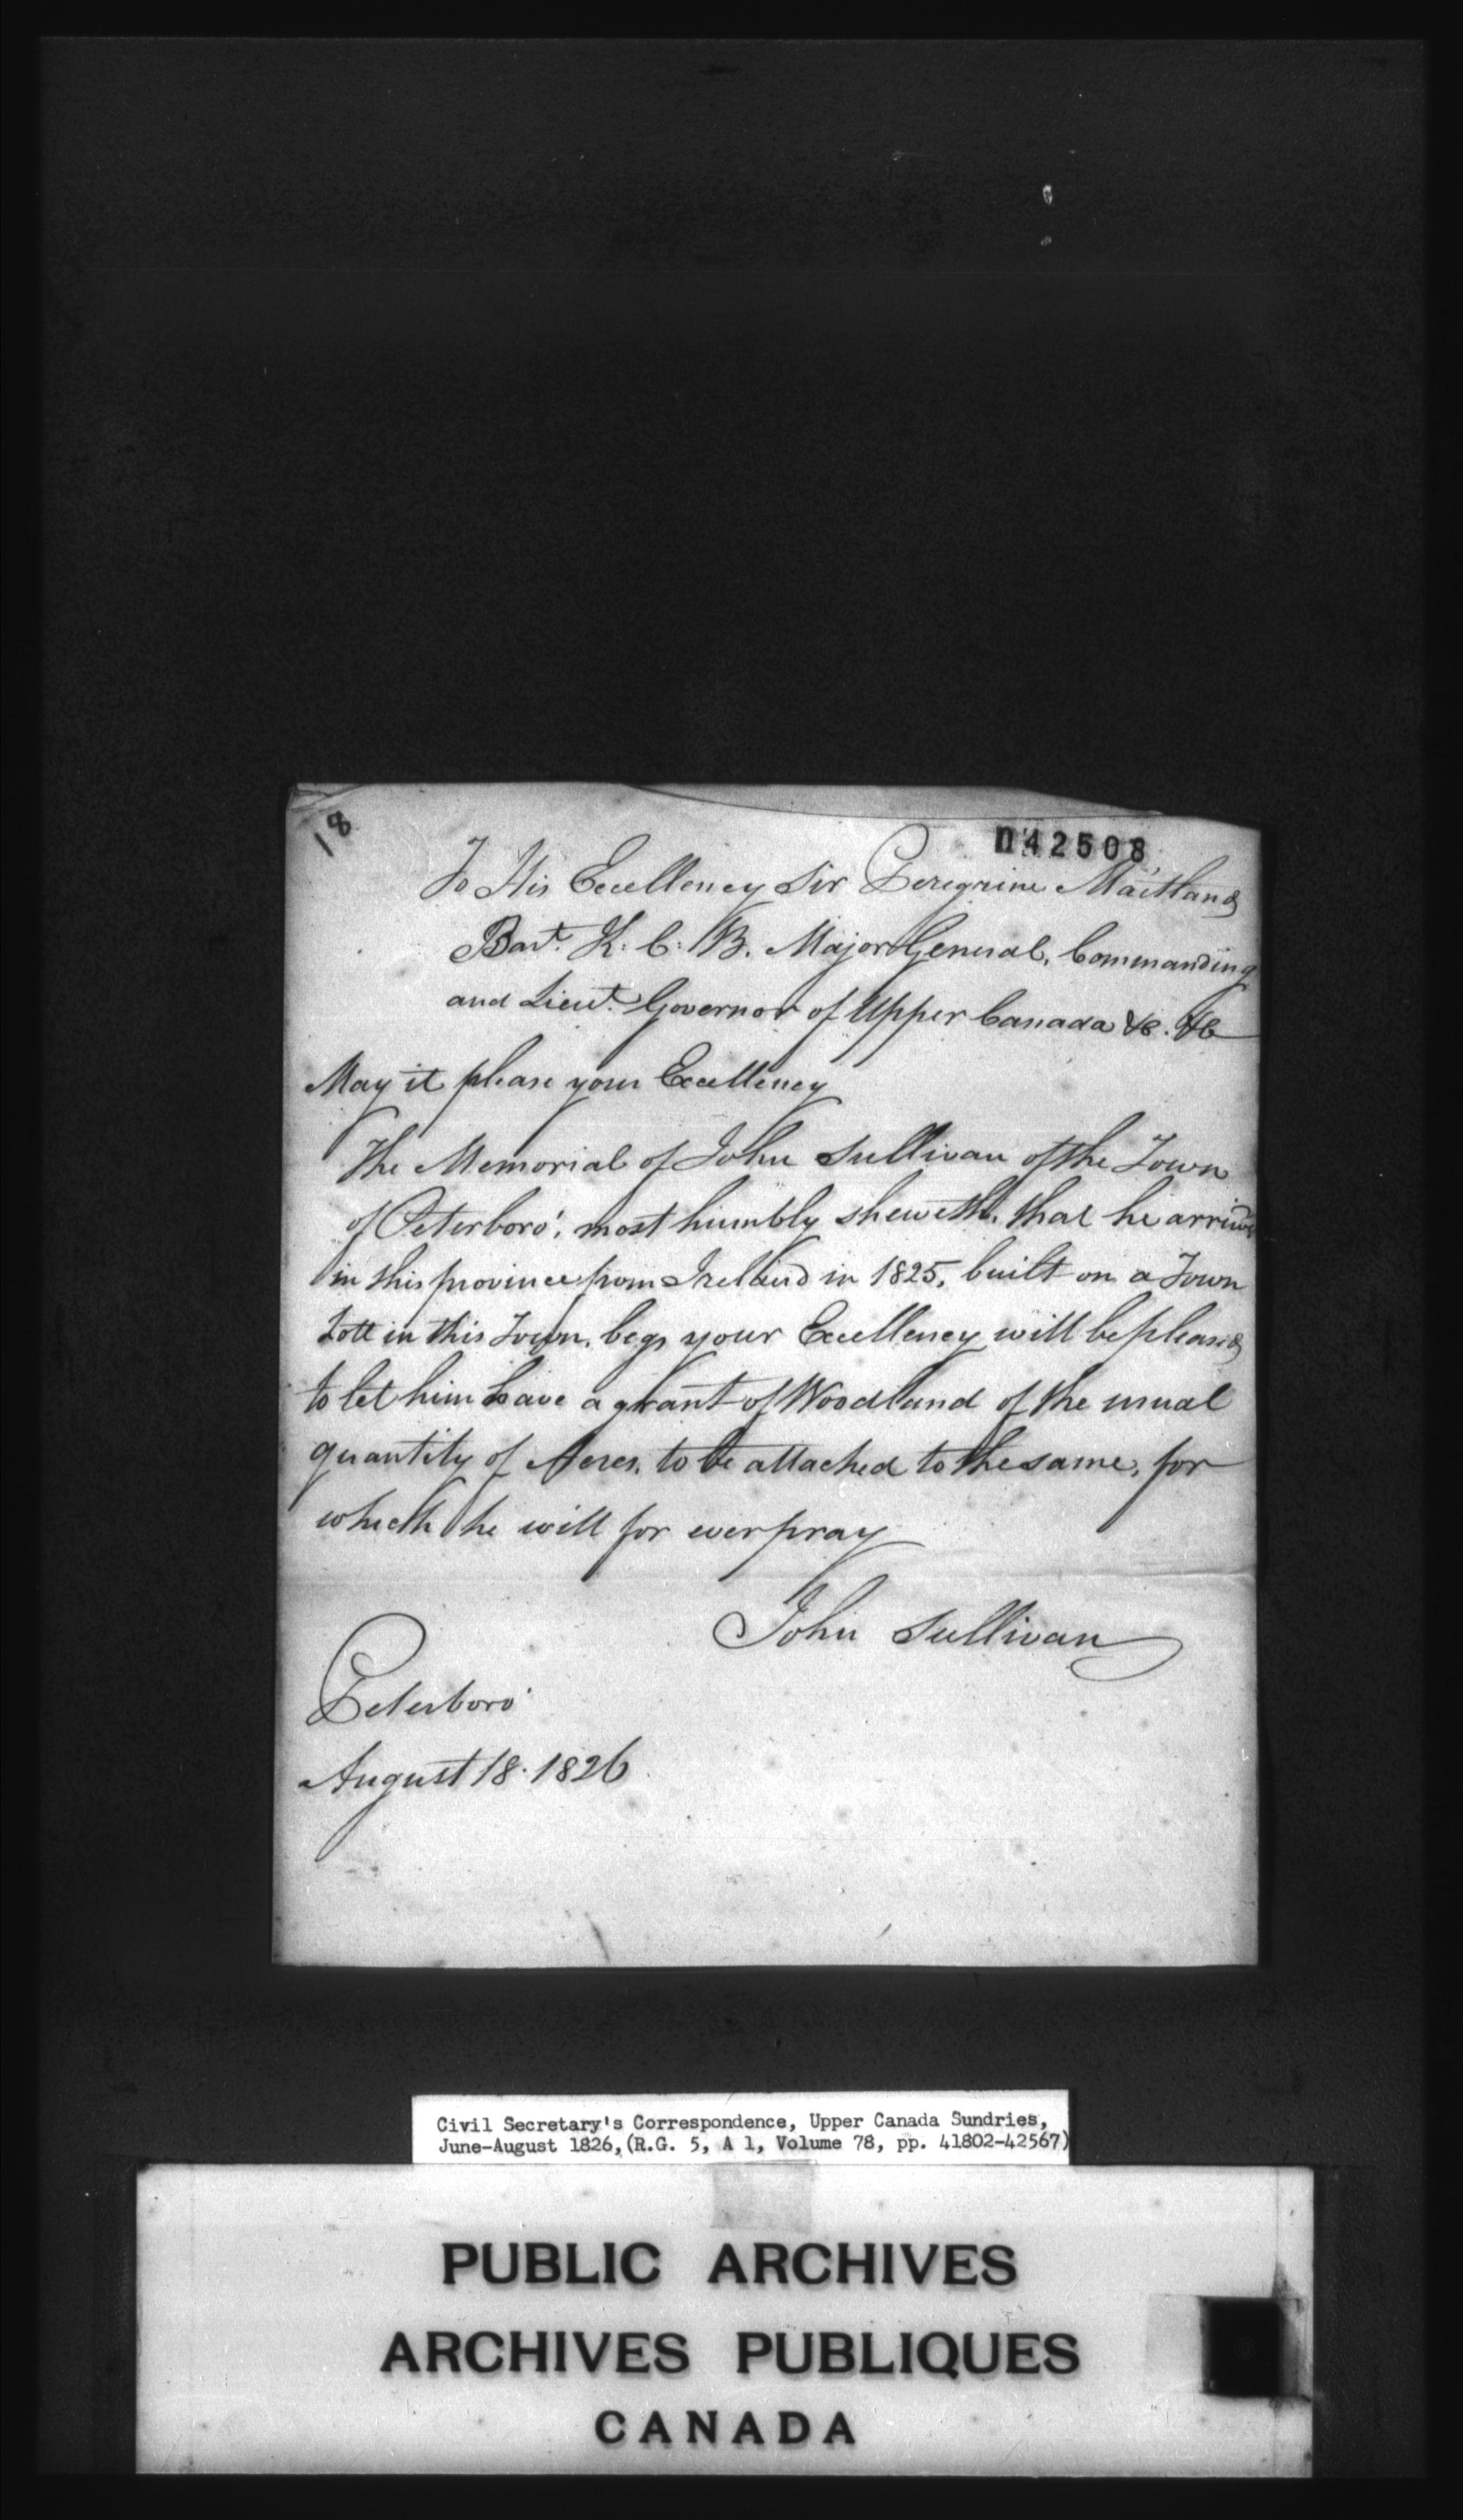 18
042508
To His Excellency Sir Peregrine Maitland
Bart. K: C: B. Major General, Commanding
and Lieut. Governor of Upper Canada &c. &c
May it please your Excellency
The Memorial of John Sullivan of the Town
of Peterboro', most humbly sheweth, that he arrived
in this province from Ireland in 1825, built on a Town
Lott in this Town, begs your Excellency will be pleased
to let him have a grant of Woodland of the usual
quantity of Acres, to be attached to the same, for
which he will for ever pray
John Sullivan
Peterboro'
August 18. 1826
Civil Secretary's Correspondence, Upper Canada Sundries,
June-August 1826, (R.G. 5, A 1, Volume 78, pp. 41802-42567)
PUBLIC ARCHIVES
ARCHIVES PUBLIQUES
CANADA